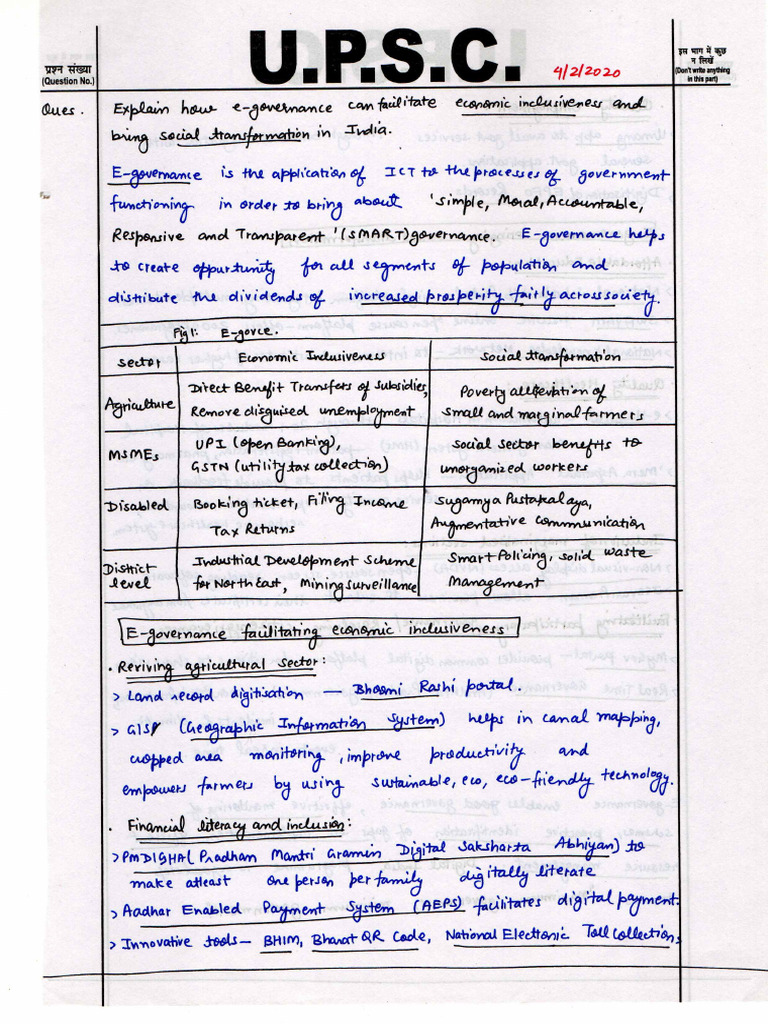 प्रश्न संख्या
(Question No.)
U.P.S.C.
4/2/2020
इस भाग में कुछ
न लिखें
(Don't write anything
in this part)
Ques. Explain how e-governance can facilitate economic inclusiveness and
bring social transformation in India.
E-governance is the application of ICT to the processes of government
functioning in order to bring about 'simple, Moral, Accountable,
Responsive and Transparent' (SMART) governance. E-governance helps
to create opportunity for all segments of population and
distribute the dividends of increased prosperity fairly across society.
Fig 1: E-govce.
Sector Economic Inclusiveness Social transformation
Agriculture Direct Benefit Transfers of Subsidies, Poverty alleviation of
Remove disguised unemployment small and marginal farmers
MSMEs UPI (open Banking), Social sector benefits to
GSTN (utility tax collection) unorganized workers
Disabled Booking ticket, Filing Income Sugamya Pustakalaya,
Tax Returns Augmentative communication
District Industrial Development Scheme Smart Policing, solid waste
level for North East, Mining surveillance Management
E-governance facilitating economic inclusiveness
. Reviving agricultural sector:
> Land record digitisation — Bhoomi Rashi portal.
> GIS (Geographic Information System) helps in canal mapping,
cropped area monitoring, improve productivity and
empowers farmers by using sustainable, eco, eco-friendly technology.
. Financial literacy and inclusion:
> PMDISHA (Pradhan Mantri Gramin Digital Saksharta Abhiyan) to
make atleast one person per family digitally literate
> Aadhar Enabled Payment System (AEPS) facilitates digital payment.
> Innovative tools— BHIM, Bharat QR Code, National Electronic Toll Collection,